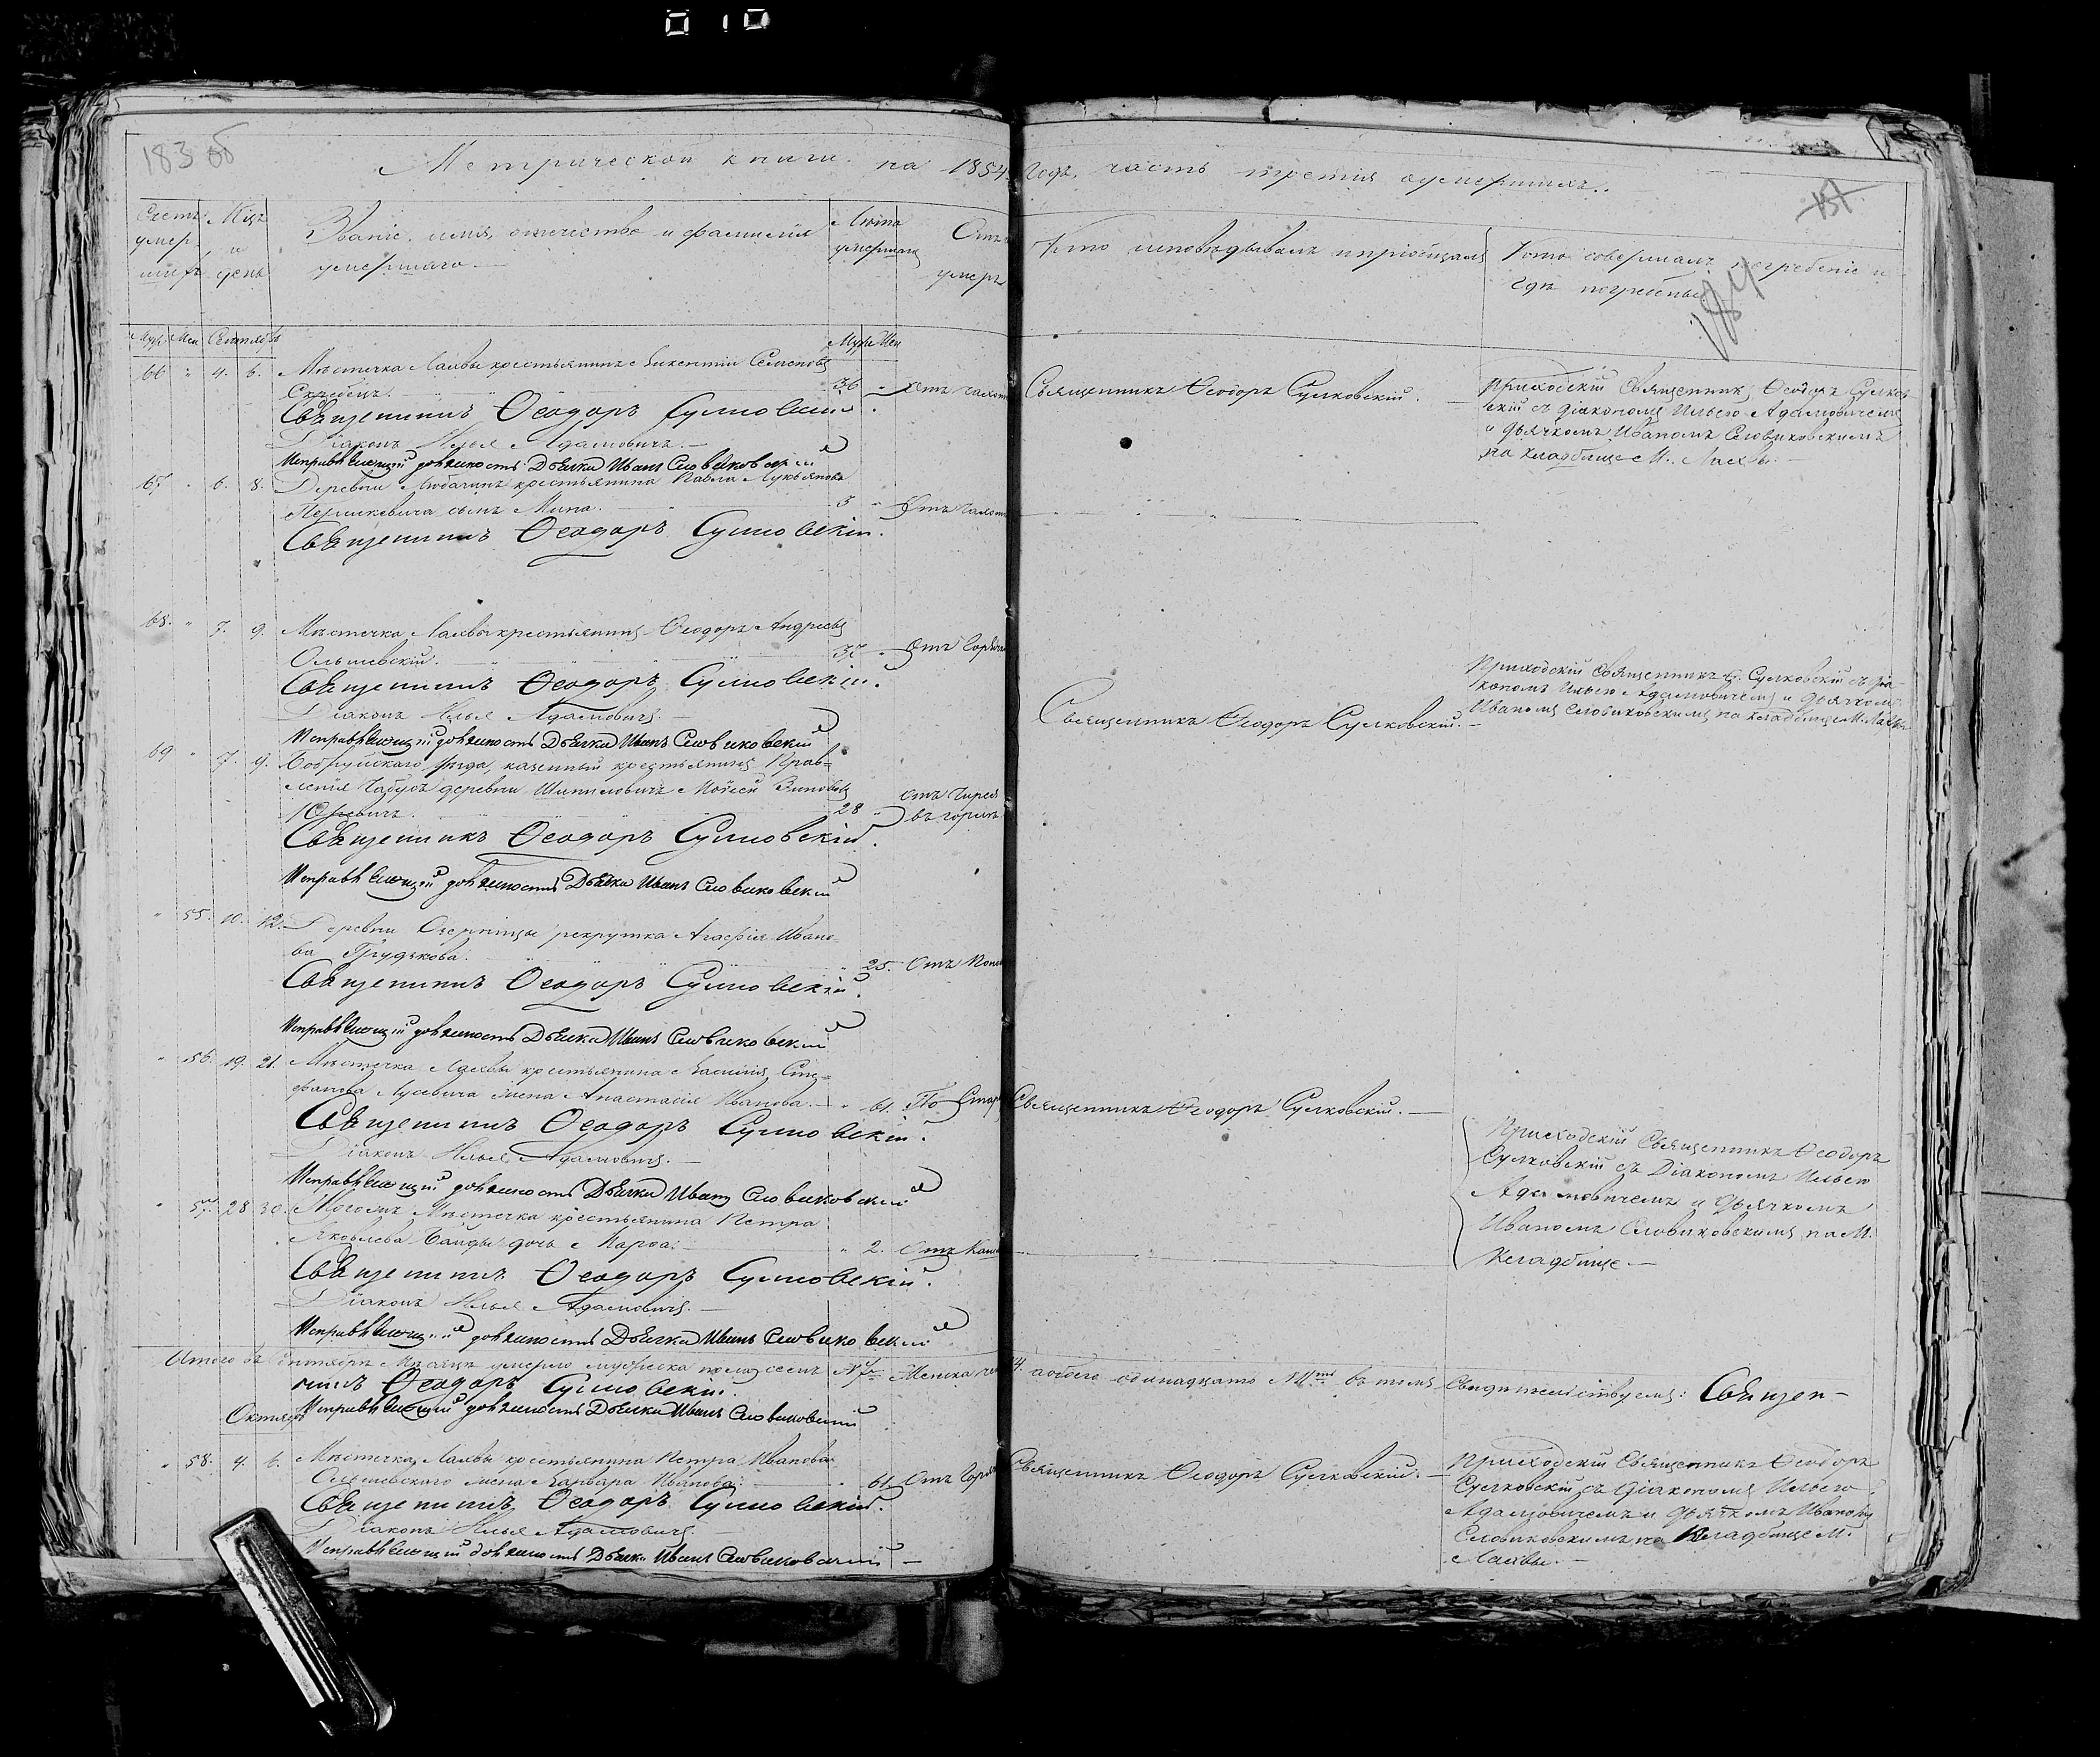 183 об
Метрической книги на 1854. Годъ, часть третія о умершихъ.
157
184
Счетъ умер шихъ
Мѣцъ и день
Званіе, имя, отчество и фамилія умершаго.
Лѣта умершаго
Отъ умеръ
Кто исповѣдывалъ и пріобщалъ
Кто совершалъ погребеніе и гдѣ погребены
Муж. Жен. Сентябрь
Муж. Жен
66 " 4. 6. Мѣстечка Лахвы крестьянинъ Викентій Семеновъ
Скребецъ. 36 " Отъ
Священникъ Ѳеодоръ Сулковскій.
Діаконъ Илья Адамовичъ.
Исправляющій должность Дьячка Иванъ Словиковскій
Священникъ Ѳеодоръ Сулковскій.
Приходскій Священникъ Ѳеодоръ Сулков
скій съ діакономъ Ильею Адамовичемъ
и дьячкомъ Иваномъ Словиковскимъ
на кладбище М. Лахвы.
67 " 6. 8. Деревни Любачинъ крестьянина Павла Лукьянова
сынъ Мина. 3 " Отъ
Священникъ Ѳеодоръ Сулковскій.
68. " 7. 9. Мѣстечка Лахвы крестьянинъ Ѳеодоръ Андреевъ
Ольшевскій. 37 " Отъ Горячк
Священникъ Ѳеодоръ Сулковскій.
Діаконъ Илья Адамовичъ.
Исправляющій должность Дьячка Иванъ Словиковскій
Священникъ Ѳеодоръ Сулковскій.
Приходскій Священникъ Ѳ. Сулковскій съ діа
кономъ Ильею Адамовичемъ и дьячкомъ
Иваномъ Словиковскимъ на кладбище М. Лахвы
69 " 7. 9. Бобруйскаго уѣзда, казенный крестьянинъ Прав=
ленія деревни Мойсей Зиновьевъ
Юревичъ. 28 " отъ
въ горлѣ
Священникъ Ѳеодоръ Сулковскій.
Исправляющій должность Дьячка Иванъ Словиковскій
" 55. 10. 12. Деревни рекрутка Агафія Ивано
ва " 25. Отъ
Священникъ Ѳеодоръ Сулковскій.
Исправляющій должность Дьячка Иванъ Словиковскій
" 56. 19. 21. Мѣстечка Лахвы крестьянина Василія Сте=
фанова Лусевича жена Анастасія Иванова. " 61. По Стар
Священникъ Ѳеодоръ Сулковскій.
Діаконъ Илья Адамовичъ.
Исправляющій должность Дьячка Иванъ Словиковскій
Священникъ Ѳеодоръ Сулковскій.
Приходскій Священникъ Ѳеодоръ
Сулковскій съ Діакономъ Ильею
Адамовичемъ и дьячкомъ
Иваномъ Словиковскимъ на М.
Кладбище.
" 57. 28 30. Мѣстечка крестьянина Петра
Яковлева дочь Марѳа. " 2. Отъ Каш
Священникъ Ѳеодоръ Сулковскій.
Діаконъ Илья Адамовичъ.
Исправляющій должность Дьячка Иванъ Словиковскій
Итого въ Сентябрѣ Мѣсяцѣ умерло мужеска пола семь №7 Женска 4. а обоего одинадцать №11ть въ томъ Свидѣтельствуемъ: Священ-
никъ Ѳеодоръ Сулковскій.
Исправляющій должность Дьячка Иванъ Словиковскій
Октябрь
" 58. 4. 6. Мѣстечка Лахвы крестьянина Петра Иванова
Ольшевскаго жена Варвара Иванова. " 61. Отъ Горяч
Священникъ Ѳеодоръ Сулковскій.
Діаконъ Илья Адамовичъ.
Исправляющій должность Дьячка Иванъ Словиковскій
Священникъ Ѳеодоръ Сулковскій.
Приходскій Священникъ Ѳеодоръ
Сулковскій съ діакономъ Ильею
Адамовичемъ и дьячкомъ Иваномъ
Словиковскимъ на Кладбище М.
Лахвы.